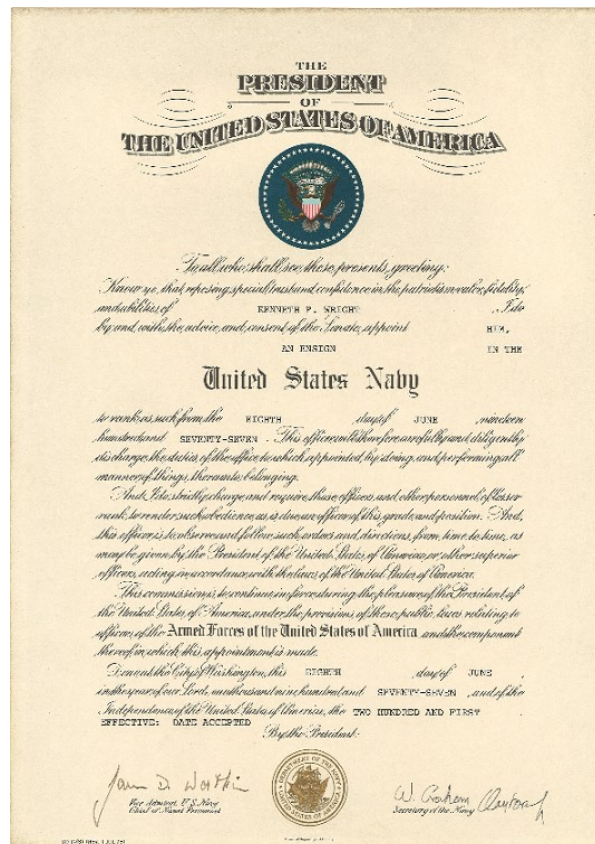 THE
PRESIDENT
OF
THE UNITED STATES OF AMERICA
To all who shall see these presents, greeting:
Know ye, that reposing special trust and confidence in the patriotism, valor, fidelity,
and abilities of KENNETH F. WRIGHT , I do
by and with the advice and consent of the Senate, appoint HIM,
AN ENSIGN IN THE
United States Navy
to rank as such from the EIGHTH day of JUNE , nineteen
hundred and SEVENTY-SEVEN . This officer will therefore carefully and diligently
discharge the duties of the office to which appointed, by doing and performing all
manner of things thereunto belonging.
And I do strictly charge and require those officers and other personnel of lesser
rank to render such obedience as is due an officer of this grade and position. And
this officer is to observe and follow such orders and directions, from time to time, as
may be given by the President of the United States of America, or other superior
officers, acting in accordance with the laws of the United States of America.
This commission is to continue in force during the pleasure of the President of
the United States of America, under the provisions of those public laws relating to
officers of the Armed Forces of the United States of America and the component
thereof in which this appointment is made.
Done at the City of Washington, this EIGHTH day of JUNE ,
in the year of our Lord, one thousand nine hundred and SEVENTY-SEVEN , and of the
Independence of the United States of America, the TWO HUNDRED AND FIRST .
EFFECTIVE: DATE ACCEPTED
By the President:
DEPARTMENT OF THE NAVY
UNITED STATES OF AMERICA
James D. Watkins
Vice Admiral, U S Navy
Chief of Naval Personnel
W. Graham Claytor Jr
Secretary of the Navy